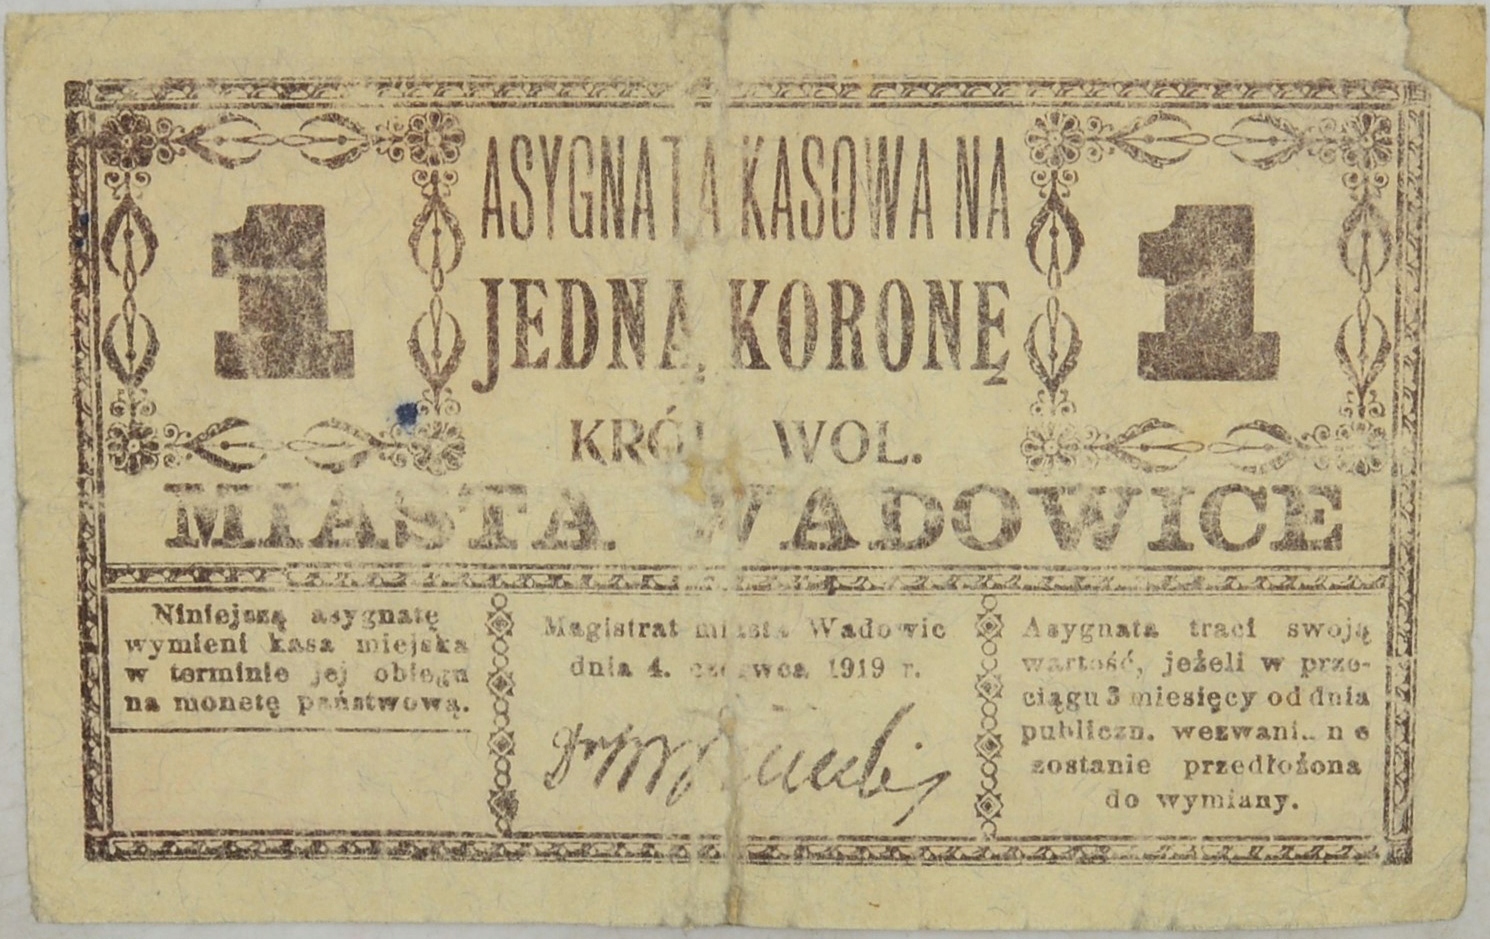 1
ASYGNATA KASOWA NA
1
JEDNĄ KORONĘ
KRÓL. WOL.
MIASTA WADOWICE
Niniejszą asygnatę
wymieni kasa miejska
w terminie jej obiegu
na monetę państwową.
Magistrat miasta Wadowic
dnia 4. czerwca 1919 r.
Asygnata traci swoją
wartość, jeżeli w prze-
ciągu 3 miesięcy od dnia
publiczn. wezwani.. n e
zostanie przedłożona
do wymiany.